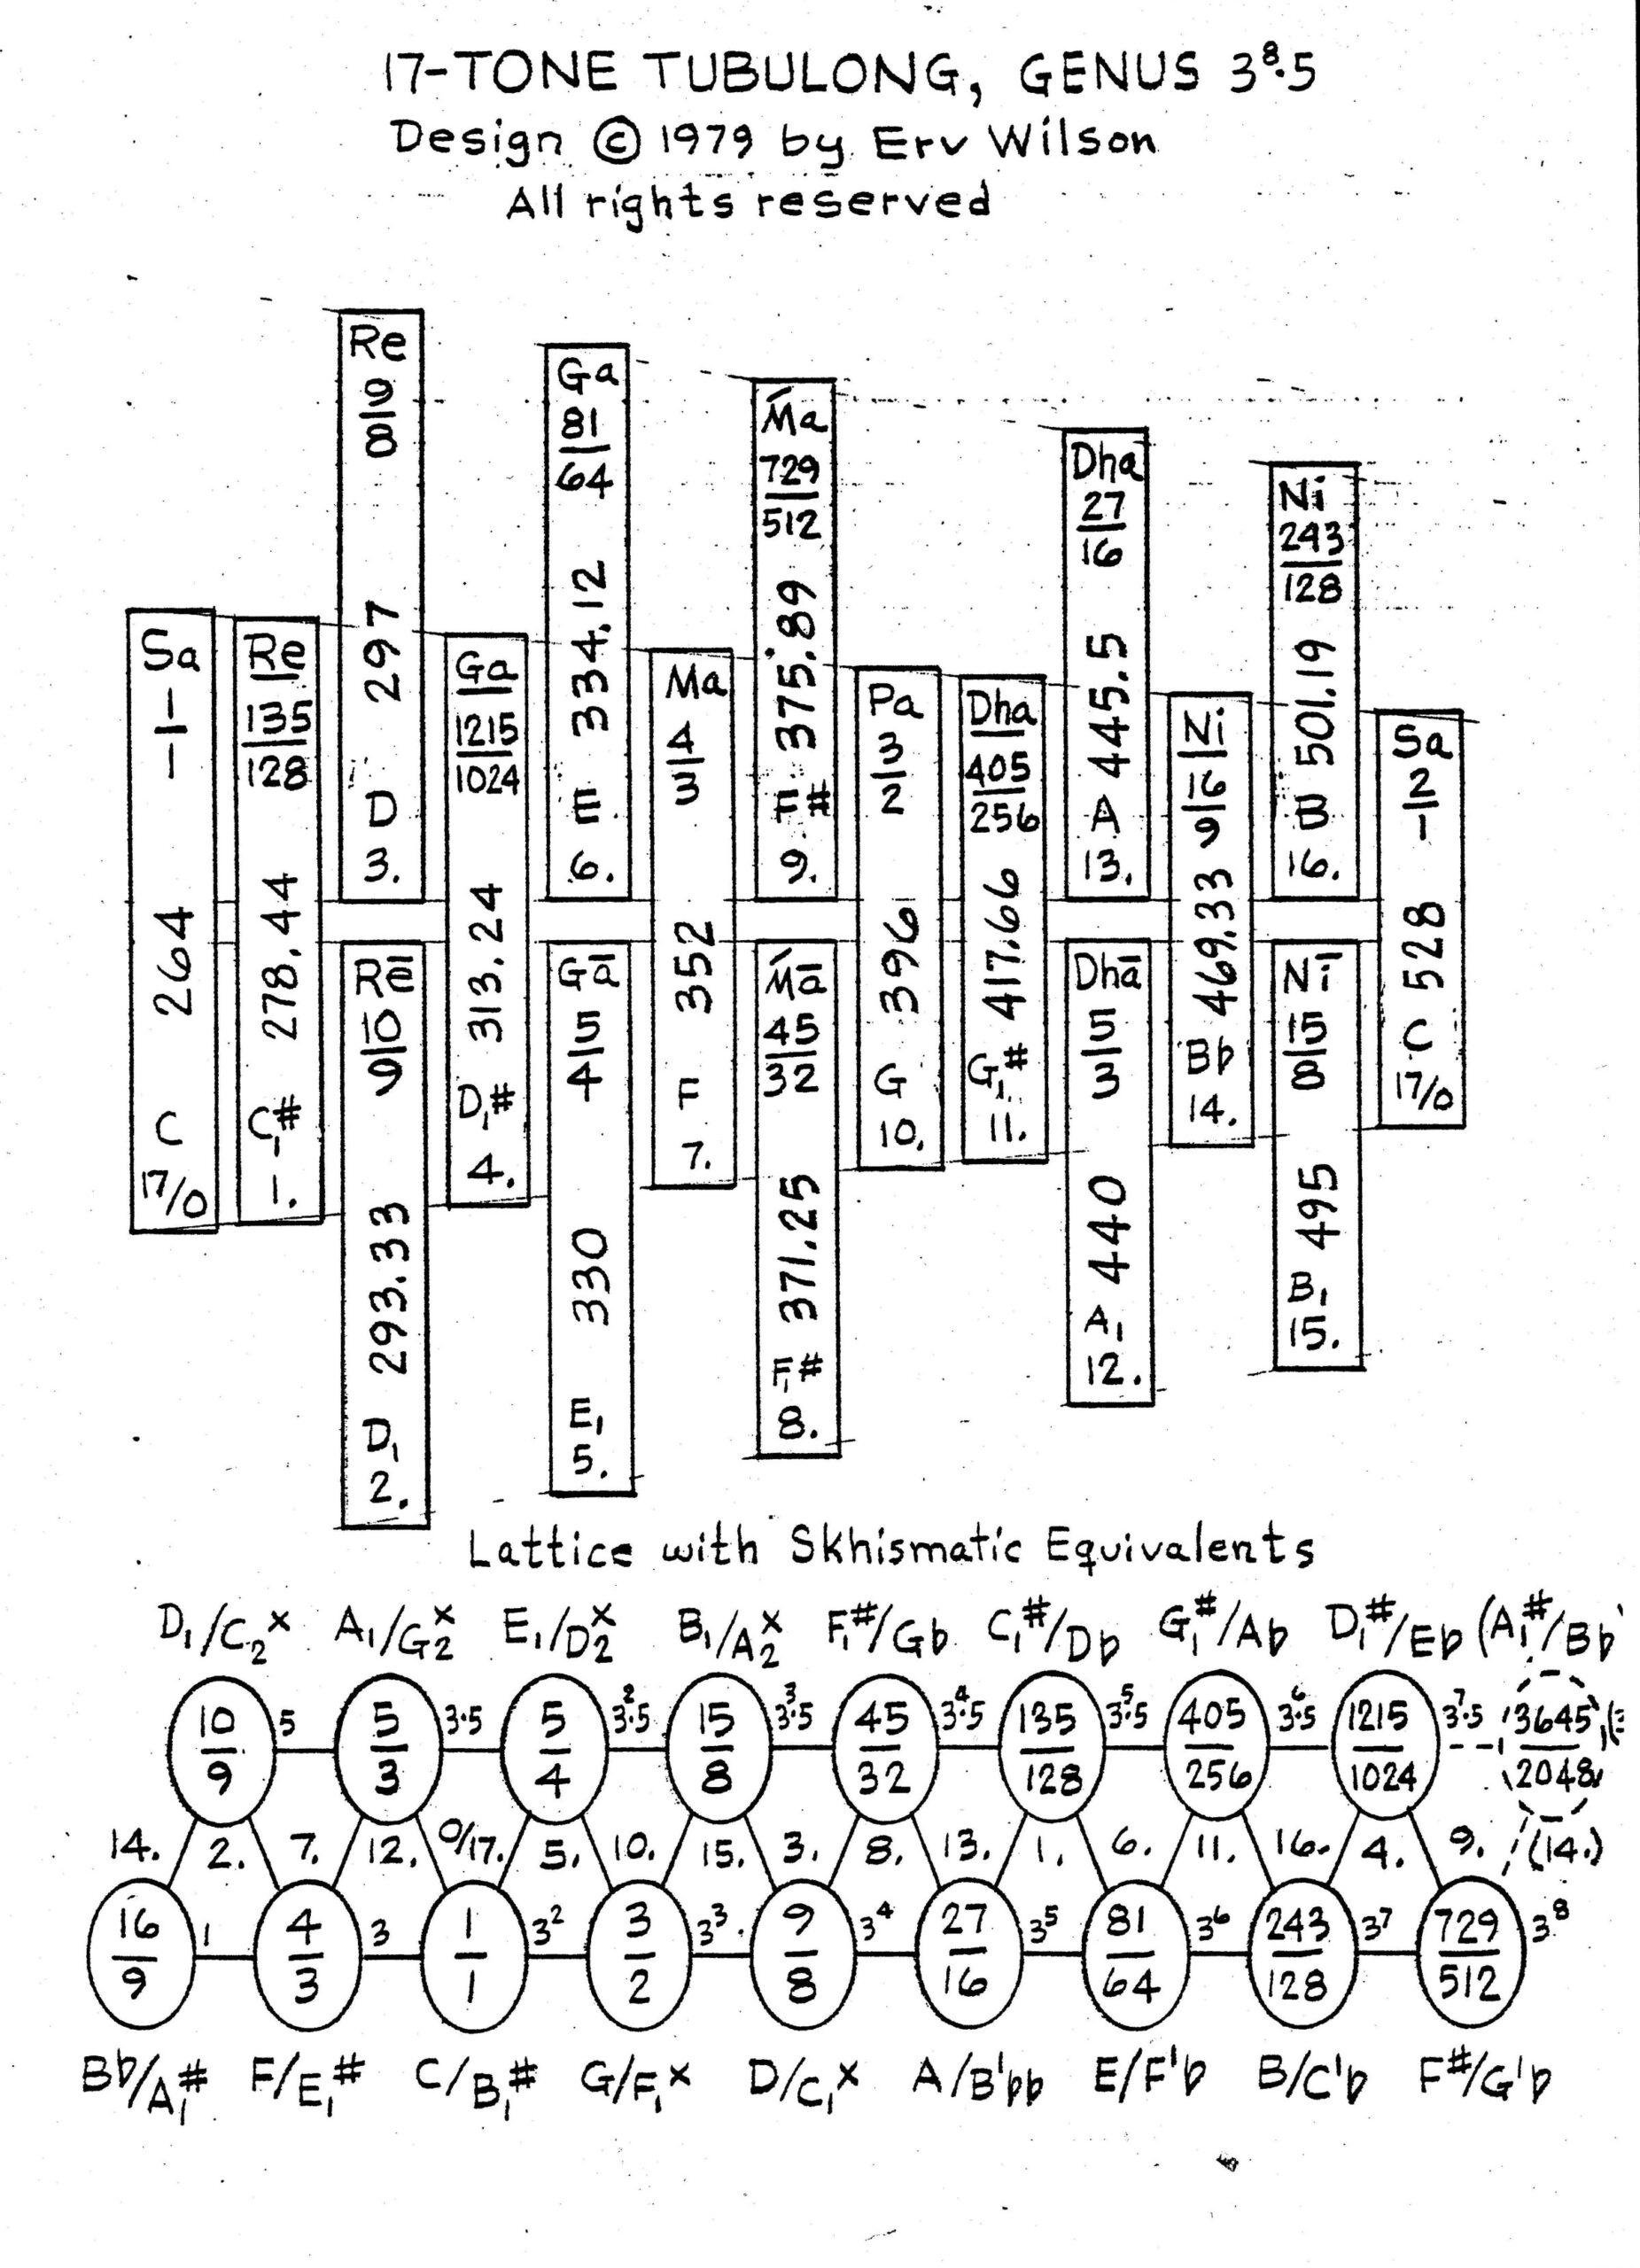 17-TONE TUBULONG, GENUS 3⁸·5
Design © 1979 by Erv Wilson
All rights reserved
Sa 1/1 264 C 17/0
R̲e̲ 135/128 278.44 C₁# 1.
Re 9/8 297 D 3.
Rē 10/9 293.33 D₁ 2.
G̲a̲ 1215/1024 313.24 D₁# 4.
Ga 81/64 334.12 E 6.
Gā 5/4 330 E₁ 5.
Ma 4/3 352 F 7.
Ḿa 729/512 375.89 F# 9.
Ḿā 45/32 371.25 F₁# 8.
Pa 3/2 396 G 10.
D̲h̲a̲ 405/256 417.66 G₁# 11.
Dha 27/16 445.5 A 13.
Dhā 5/3 440 A₁ 12.
N̲i̲ 16/9 469.33 Bb 14.
Ni 243/128 501.19 B 16.
Nī 15/8 495 B₁ 15.
Sa 2/1 528 C 17/0
Lattice with Skhismatic Equivalents
D₁/C₂x A₁/G₂x E₁/D₂x B₁/A₂x F₁#/Gb C₁#/Db G₁#/Ab D₁#/Eb (A₁#/Bb
10/9 5 5/3 3·5 5/4 3²·5 15/8 3³·5 45/32 3⁴·5 135/128 3⁵·5 405/256 3⁶·5 1215/1024 3⁷·5 3645/2048
14. 2. 7. 12. 0/17. 5. 10. 15. 3. 8. 13. 1. 6. 11. 16. 4. 9. (14.)
16/9 1 4/3 3 1/1 3² 3/2 3³ 9/8 3⁴ 27/16 3⁵ 81/64 3⁶ 243/128 3⁷ 729/512 3⁸
Bb/A₁# F/E₁# C/B₁# G/F₁x D/C₁x A/B'bb E/F'b B/C'b F#/G'b